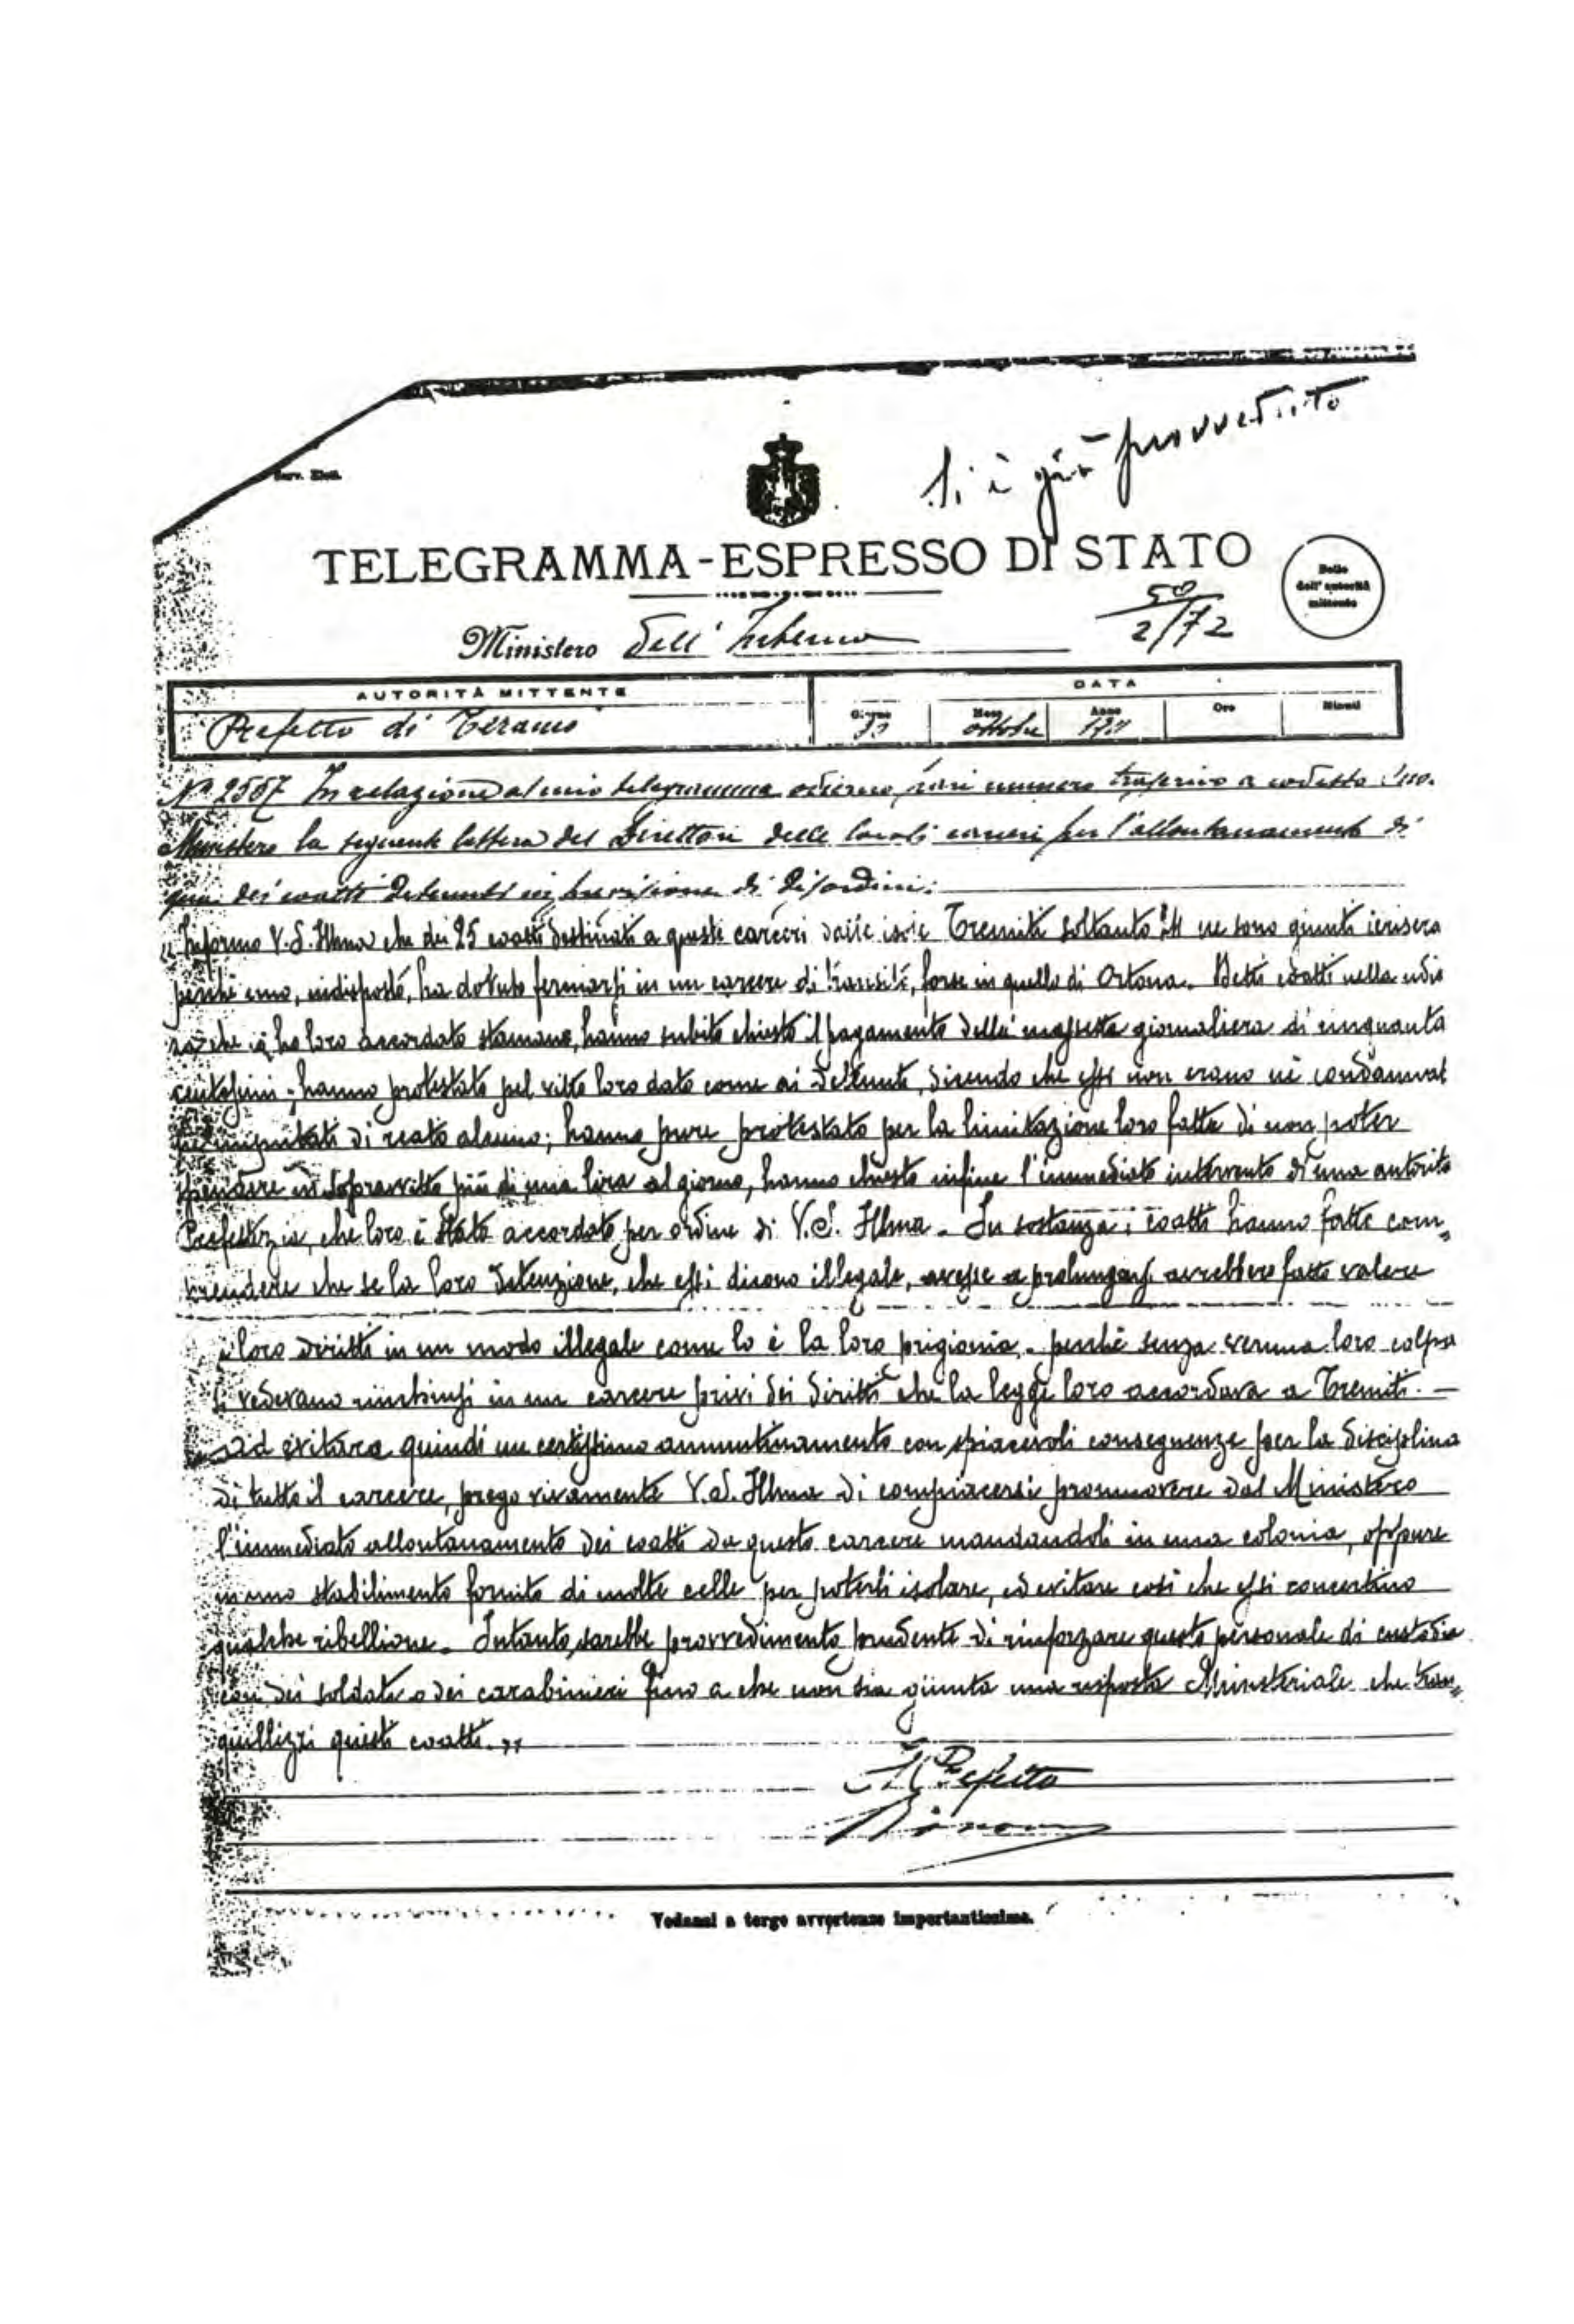 Si è già provveduto
TELEGRAMMA-ESPRESSO DI STATO
50
2/72
Bollo
dell'autorità
mittente
Ministero dell'Interno
AUTORITÀ MITTENTE
DATA
Prefetto di Teramo
Giorno
Mese
Anno
Ore
Minuti
ottobre
N° 2557 In relazione al mio telegramma odierno, pari numero trasferivo a codesto
Ministero la seguente lettera del Direttore delle locali carceri per l'allontanamento di
qui dei coatti detenuti in previsione di disordini:
"Informo V.S. Illma che dei 25 coatti destinati a queste carceri dalle isole Tremiti soltanto 24 ne sono giunti ierisera
perchè uno, indisposto, ha dovuto fermarsi in un carcere di transito, forse in quello di Ortona. Detti coatti nella udie
nza che io ho loro accordato stamane, hanno subito chiesto il pagamento della mazzetta giornaliera di cinquanta
centesimi; hanno protestato pel vitto loro dato come ai detenuti, dicendo che essi non erano nè condannati
nè imputati di reato alcuno; hanno pure protestato per la limitazione loro fatta di non poter
spendere in sopravvitto più di una lira al giorno, hanno chiesto infine l'immediato intervento di una autorità
Prefettizia, che loro è stato accordato per ordine di V.S. Illma. In sostanza i coatti hanno fatto com=
prendere che se la loro detenzione, che essi dicono illegale, avesse a prolungarsi avrebbero fatto valere
i loro diritti in un modo illegale come lo è la loro prigionia, perchè senza veruna loro colpa
si vedevano rinchiusi in un carcere privi dei diritti che la legge loro accordava a Tremiti. —
ad evitare quindi un certissimo ammutinamento con spiacevoli conseguenze per la disciplina
di tutto il carcere, prego vivamente V.S. Illma di compiacersi promuovere dal Ministero
l'immediato allontanamento dei coatti da questo carcere mandandoli in una colonia, oppure
in uno stabilimento fornito di molte celle per poterli isolare, ed evitare così che essi concertino
qualche ribellione. Intanto, sarebbe provvedimento prudente di rinforzare questo personale di custodia
con dei soldati o dei carabinieri fino a che non sia giunta una risposta Ministeriale che tran=
quillizzi questi coatti."
Il Prefetto
Vedansi a tergo avvertenze importantissime.